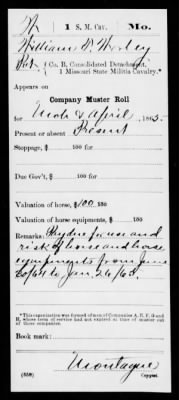 W 1 S. M. Cav. Mo.
William P. Worley
Pvt., Co. B, Consolidated Detachment,
1 Missouri State Militia Cavalry.*
Appears on
Company Muster Roll
for Mch & April, 1865.
Present or absent Present
Stoppage, $ 100 for
Due Gov't, $ 100 for
Valuation of horse, $ 100 100
Valuation of horse equipments, $ 100
Remarks: Pay due for use and
risk of horse and horse
equipments from June
20/64 to Jan. 26/65.
*This organization was formed of men of Companies A, E, F, G and
H, whose term of service had not expired at time of muster out
of those companies.
Book mark:
Montague
(858) Copyist.